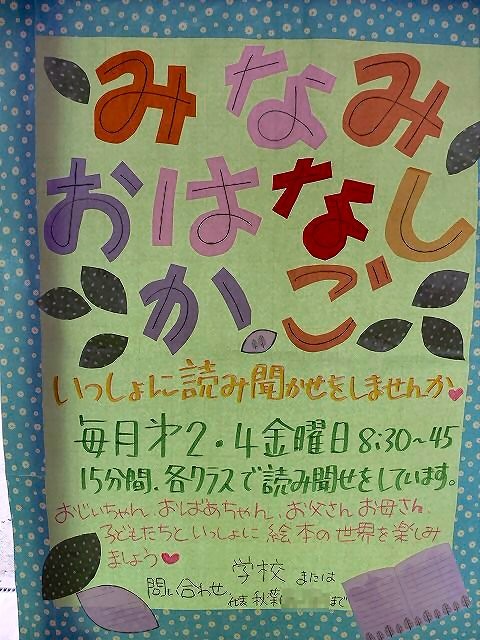 みなみ
おはなし
かご
いっしょに読み聞かせをしませんか
毎月第2・4金曜日8:30~45
15分間、各クラスで読み聞せをしています。
おじいちゃん、おばあちゃん、お父さん お母さん
子どもたちといっしょに 絵本の世界を楽しみ
ましょう
学校 または
問い合わせ 代表 秋葉 まで